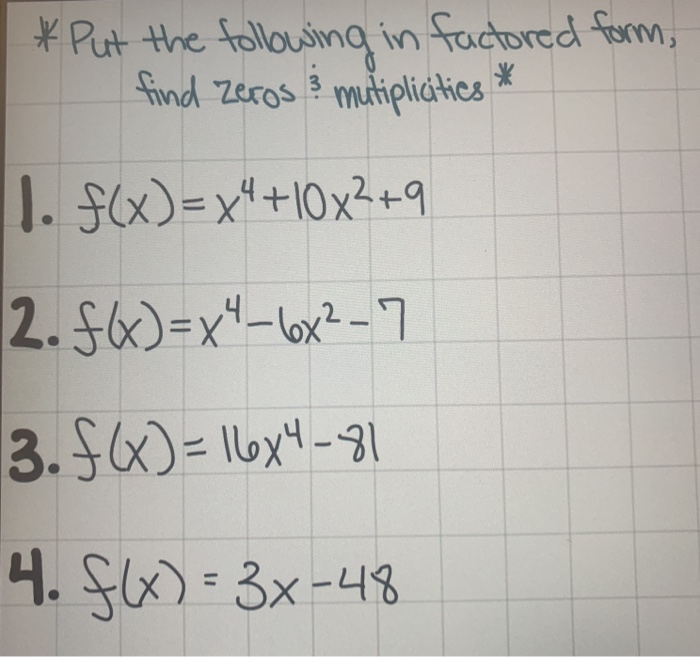 * Put the following in factored form,
find zeros & mutiplicities *
1. f(x)=x⁴+10x²+9
2. f(x)=x⁴-6x²-7
3. f(x)=16x⁴-81
4. f(x)=3x-48